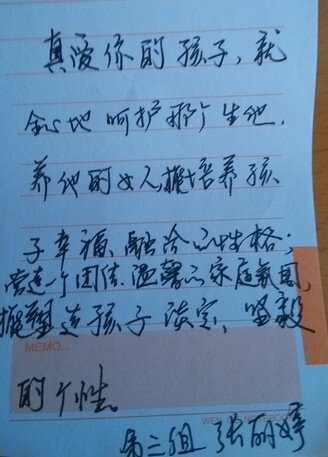 真爱你的孩子,就
全心地呵护那个生他.
养他的女人,能培养孩
子幸福,融洽的性格;
营造一个团结.温馨的家庭氛围,
能塑造孩子淡定,坚毅
MEMO...
的个性。
第三组 张丽婷